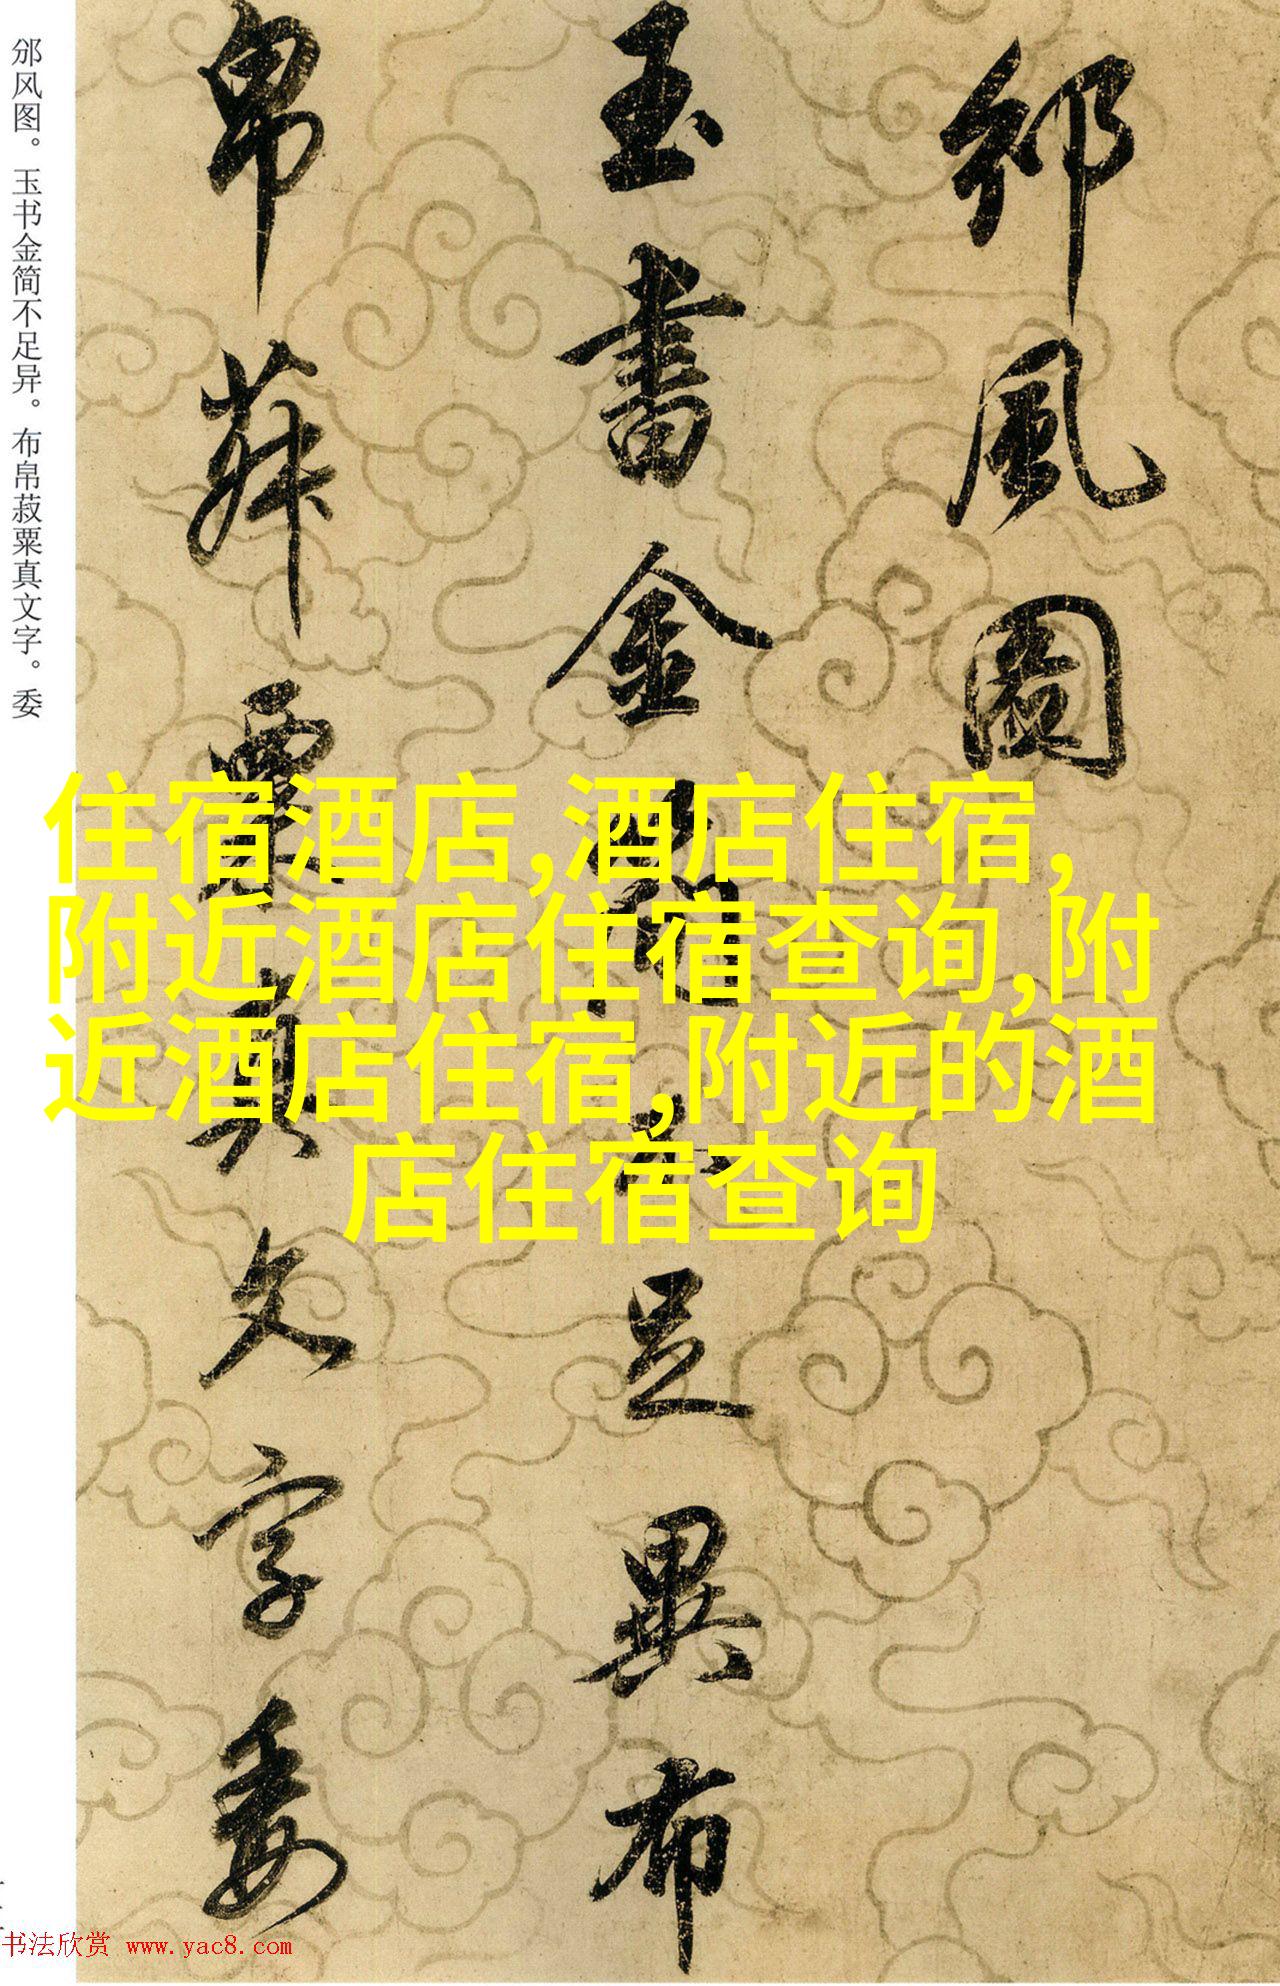 邠風圖
玉書金簡不足異布
帛菽粟真文字委
邠风图。玉书金简不足异。布帛菽粟真文字。委
住宿酒店,酒店住宿,
附近酒店住宿查询,附
近酒店住宿,附近的酒
店住宿查询
书法欣赏 www.yac8.com